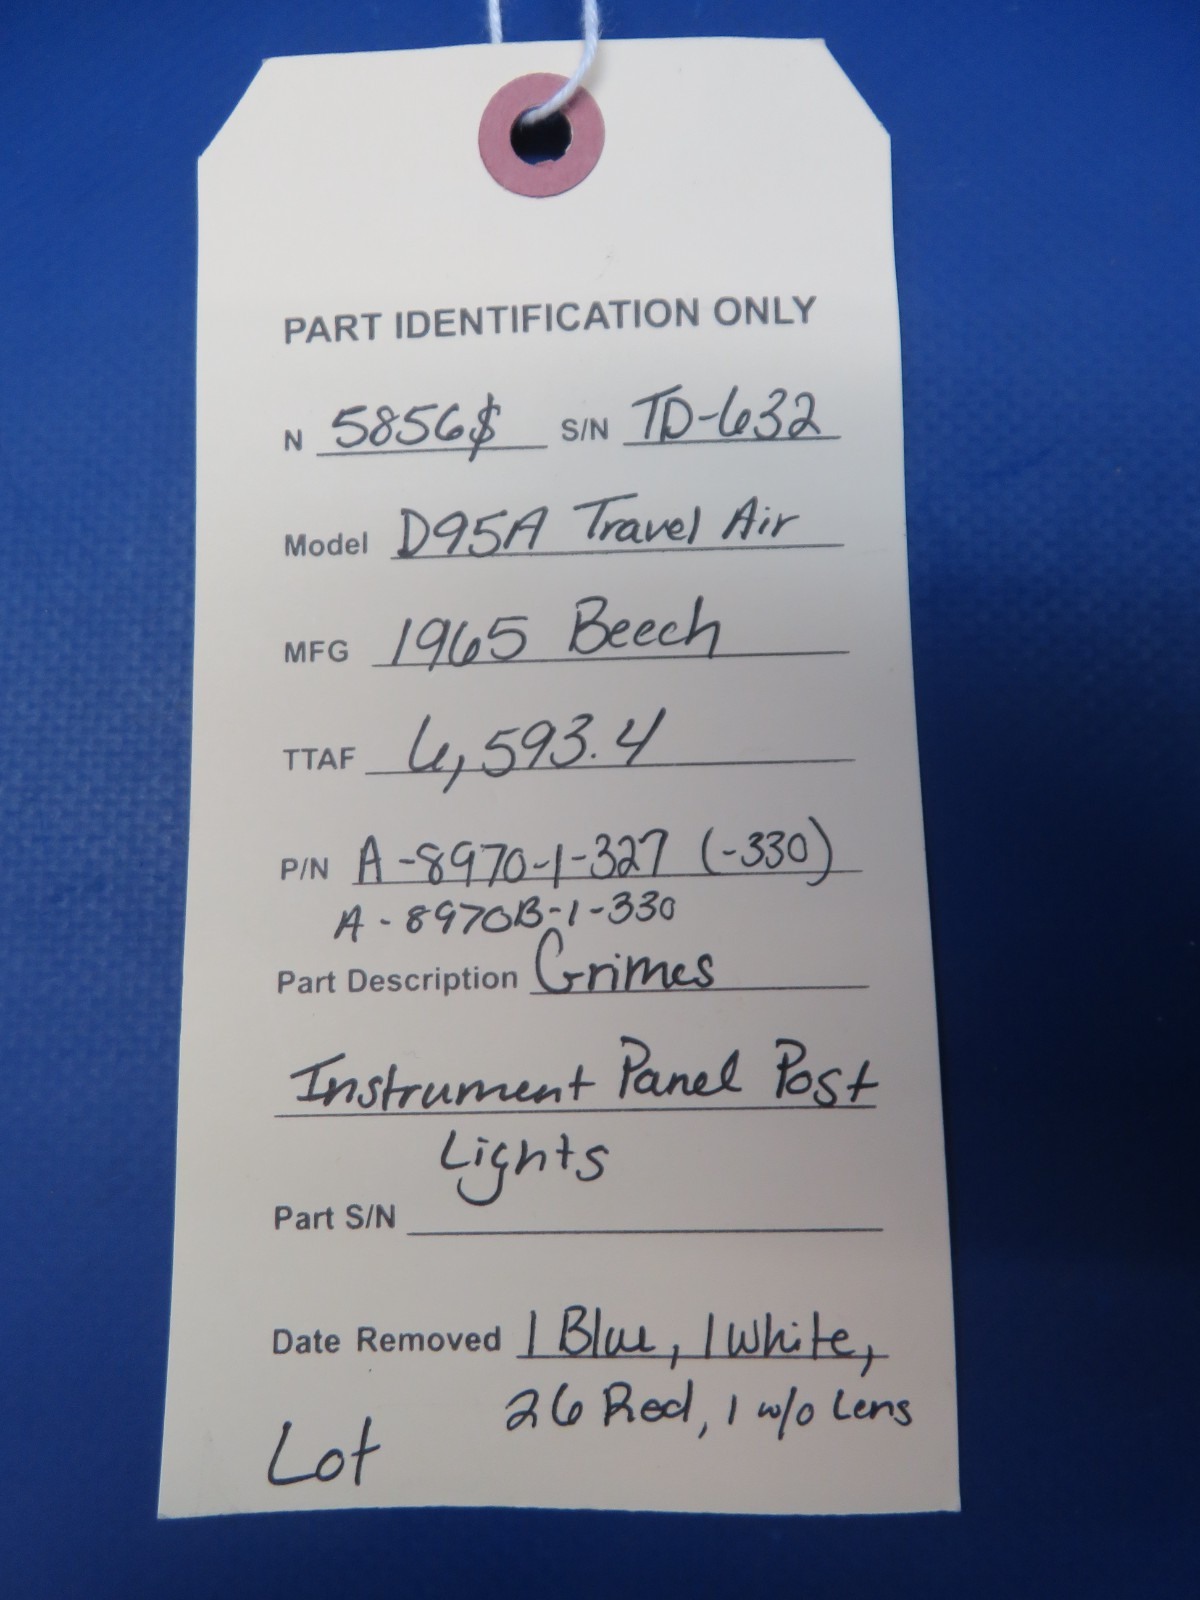 PART IDENTIFICATION ONLY
N 5856$ S/N TD-632
Model D95A Travel Air
MFG 1965 Beech
TTAF 6,593.4
P/N A-8970-1-327 (-330)
A-8970B-1-330
Part Description Grimes
Instrument Panel Post
Lights
Part S/N
Date Removed 1 Blue, 1 White,
26 Red, 1 w/o Lens
Lot